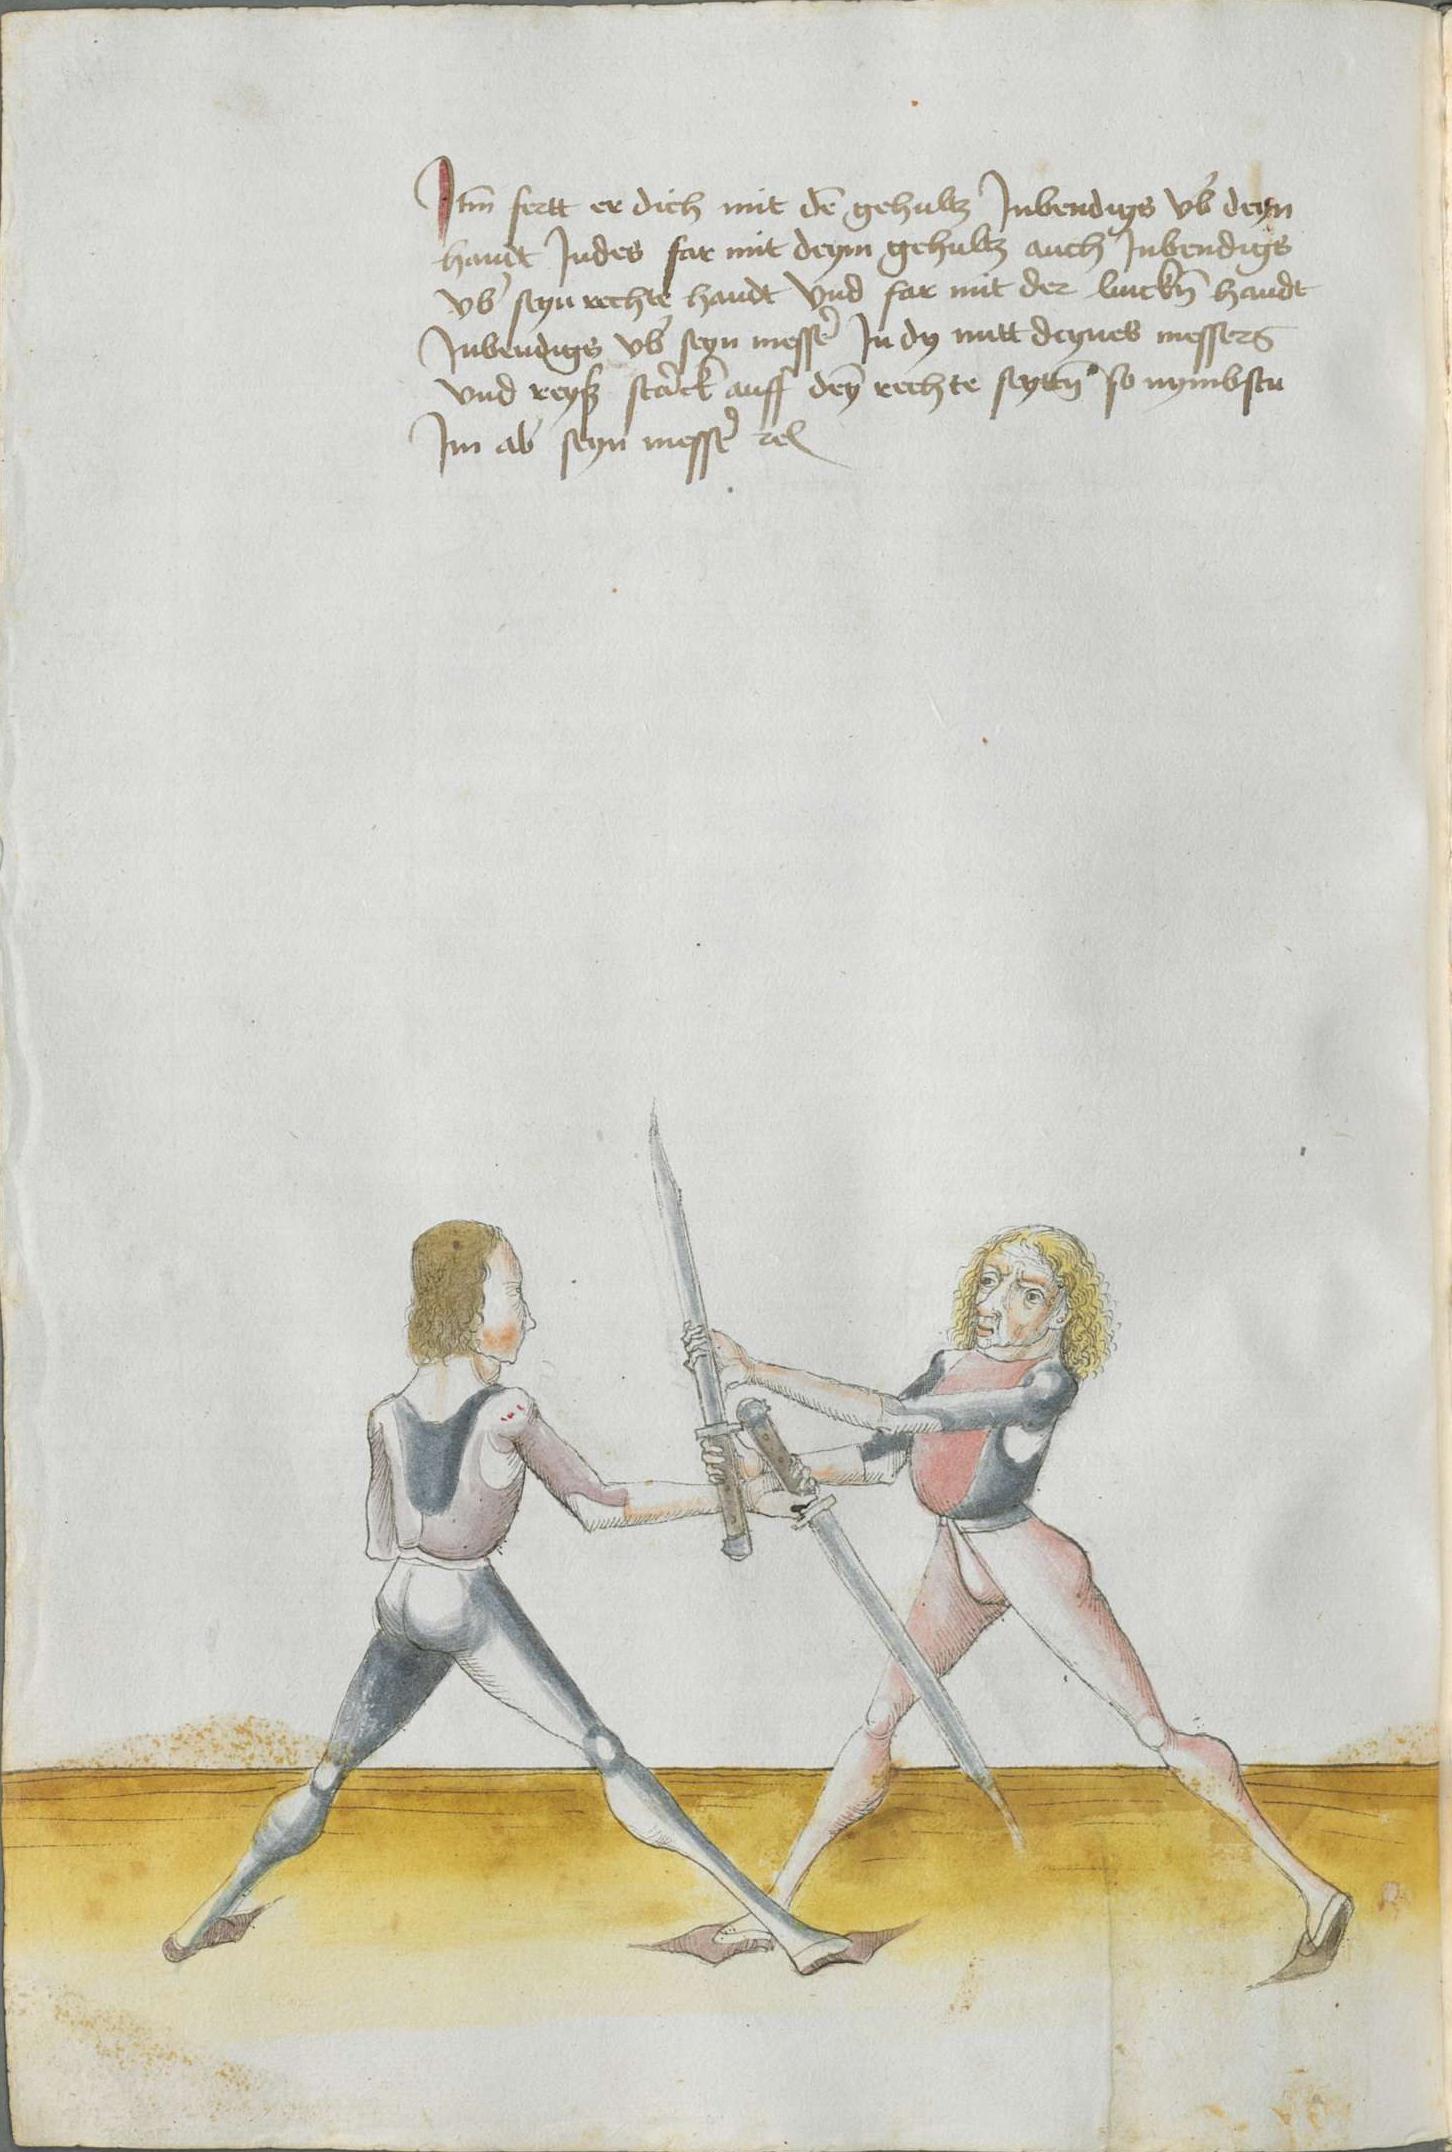 Itm̄ fertt er dich mit dē gehultz Inbendigs vb̓ deyn
handt Indes far mit deym gehultz auch Inbendigs
vb̓ seyn rechte handt vnd far mit der linckñ handt
Inbendigs vb̓ seyn messe͛ In dy mitt deynes messers
vnd reyß sta͛ck auff deȳ rechte seyttñ so nymbstu
Im ab seyn messe͛ rc